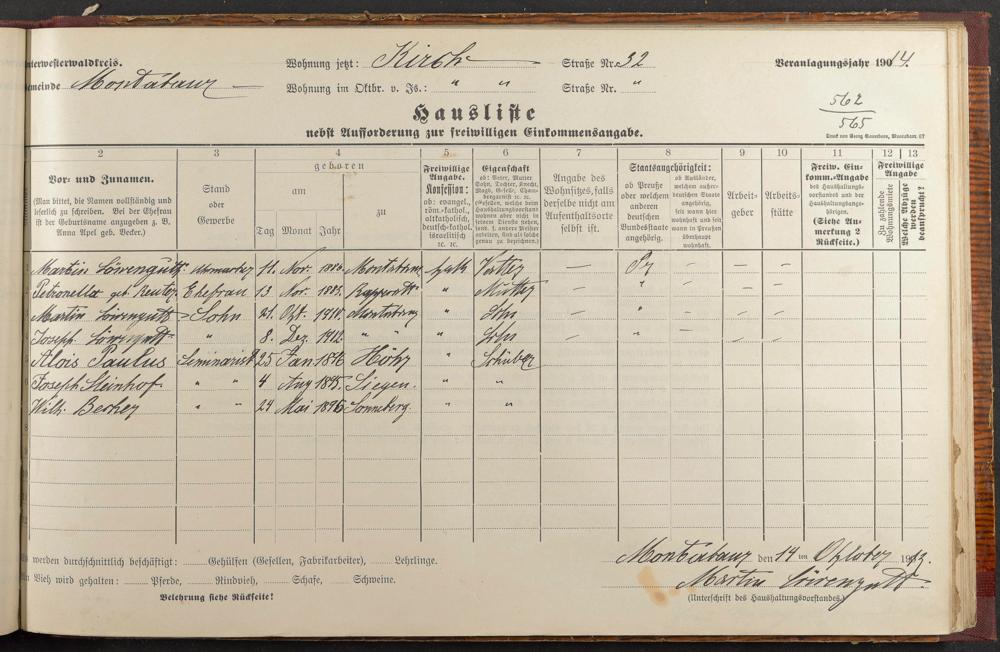 nterwesterwaldkreis. Wohnung jetzt: Kirch Straße Nr. 32 Veranlagungsjahr 1904 14.
emeinde Montabaur Wohnung im Oktbr. v. Js.: " " Straße Nr. "
562
565
Hausliste
nebst Aufforderung zur freiwilligen Einkommensangabe.
2 3 4 5 6 7 8 9 10 11 12 13
Vor- und Zunamen.
(Man bittet, die Namen vollständig und
leserlich zu schreiben. Bei der Ehefrau
ist der Geburtsname anzugeben z. B.
Anna Apel geb. Becker.)
Stand
oder
Gewerbe
geboren
am
zu
Tag Monat Jahr
Freiwillige
Angabe.
Konfession:
ob: evangel.,
röm.-kathol.,
altkatholisch,
deutsch-kathol.
israelitisch
2c. 2c.
Eigenschaft
ob: Vater, Mutter
Sohn, Tochter, Knecht,
Magd, Geselle,
Angabe des
Wohnsitzes, falls
derselbe nicht am
Aufenthaltsorte
selbst ist.
Staatsangehörigkeit:
ob Preuße
oder welchem
anderen
deutschen
Bundesstaate
angehörig.
ob Ausländer,
welchem außer-
deutschen Staate
angehörig,
seit wann hier
wohnhaft und seit
wann in Preußen
überhaupt
wohnhaft.
Arbeit-
geber
Arbeits-
stätte
Freiw. Ein-
komm.-Angabe
des Haushaltungs-
vorstandes und der
Haushaltungsange-
hörigen.
(Siehe An-
merkung 2
Rückseite.)
Freiwillige
Angabe
Zu zahlende
Wohnungsmiete
Welche Abzüge
werden
beansprucht?
Martin Löwenguth 11. Nov. Montabaur kath Vater — Pr — — —
Petronella geb. Reuter Ehefrau 13 Nov. " Mutter — " — — —
Martin Löwenguth Sohn 21. Okt. 1910 Montabaur " Sohn — " — — —
Joseph Löwenguth " 8. Dez. 1912 " " " Sohn — " —
Alois Paulus Seminarist 25 Jan Höhr "
Joseph Steinhof " " 4 Aug 1895. Siegen. " "
Wilh. Becker " " 24 Mai 1896 Sonneberg. " "
werden durchschnittlich beschäftigt: Gehülfen (Gesellen, Fabrikarbeiter), Lehrlinge.
Vieh wird gehalten: Pferde, Rindvieh, Schafe, Schweine.
Belehrung siehe Rückseite!
Montabaur den 14 ten Oktober 1913.
Martin Löwenguth
(Unterschrift des Haushaltungsvorstandes.)